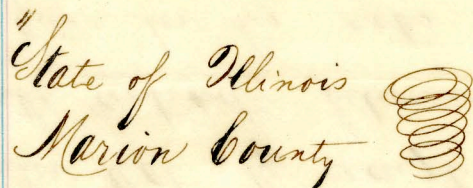 "State of Illinois
Marion County